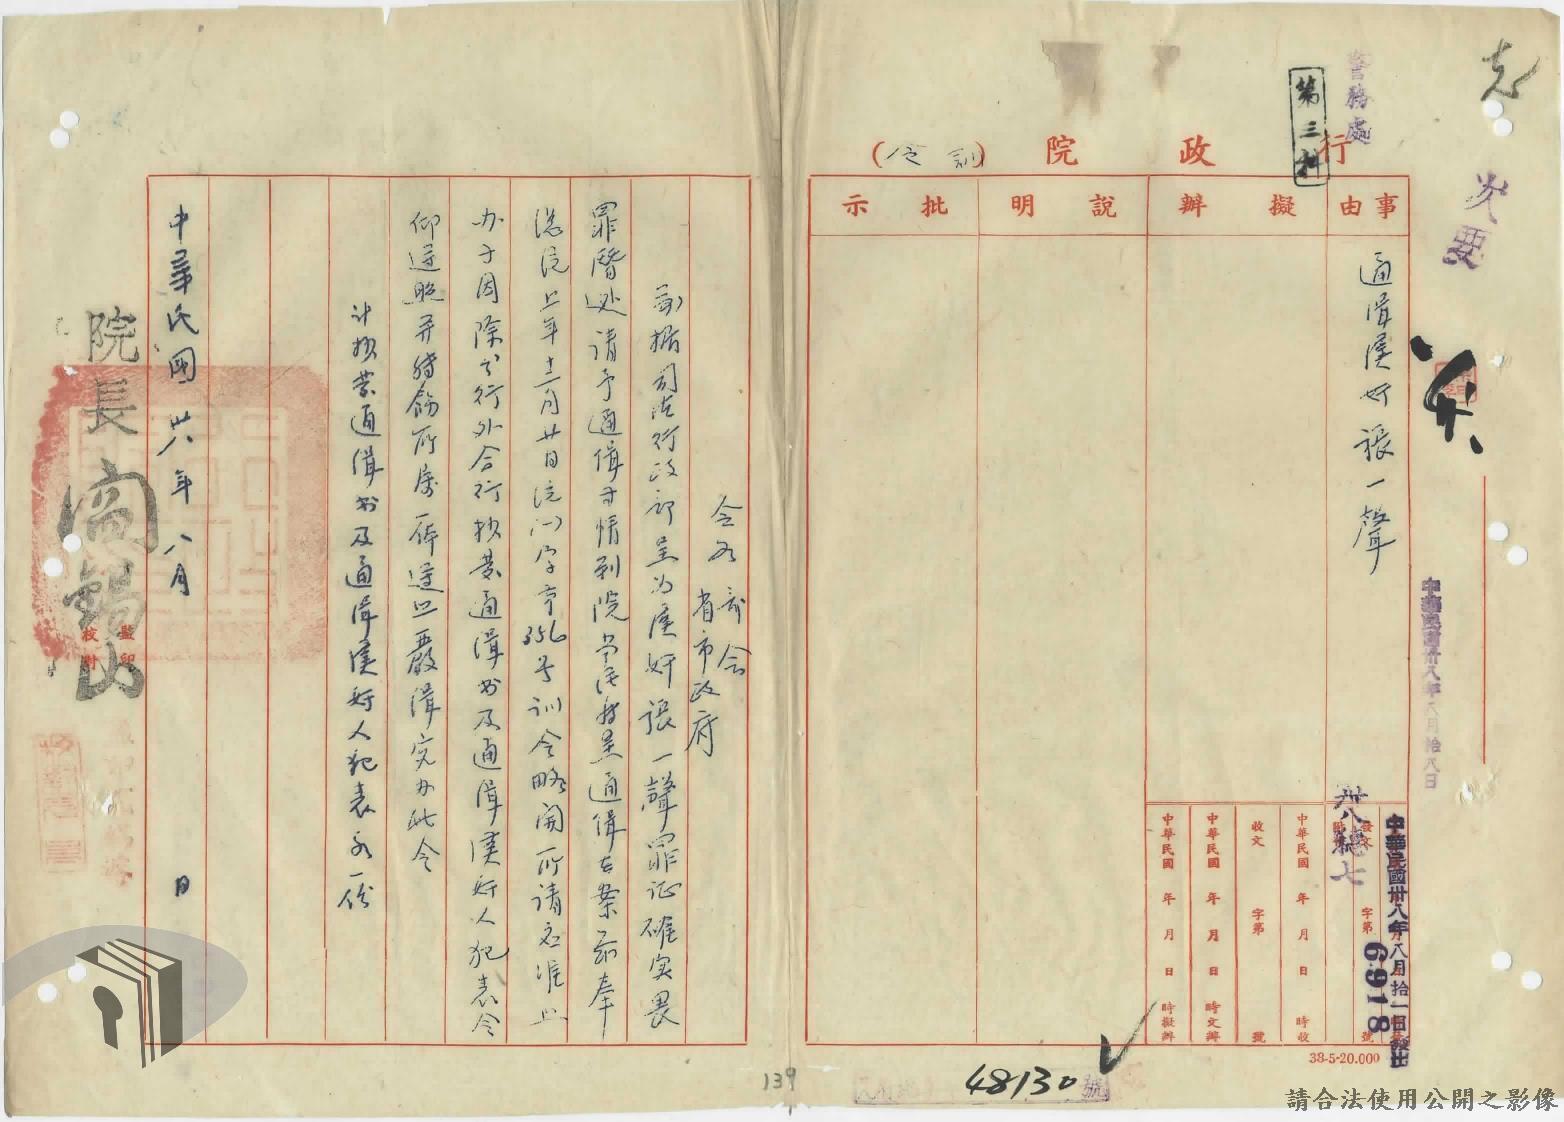 志
次要
警務處
第三科
行政院（訓令）
事由
擬辦
說明
批示
通緝漢奸張一聲
中華民國卅八年八月拾八日
中華民國卅八年八月拾一日發出
發文
字第
號
卅八總七
6918
中華民國 年 月 日 時收
收文 字第 號
中華民國 年 月 日 時文辦
中華民國 年 月 日 時擬辦
38-5-20.000
48130
號
139
令各部会
省市政府
前据司法行政部呈为漢奸張一聲罪证確实畏
罪潛逃请予通缉等情到院当经转呈通缉在案茲奉
总统上年十二月廿日统(一)字第356号训令略開所请应准照
办等因除分行外合行抄发通缉书及通缉漢奸人犯表令
仰遵照并转飭所属一体遵照嚴缉究办此令
计抄发通缉书及通缉漢奸人犯表各一份
中華民國卅八年八月 日
院長閻錫山
監印
校對
請合法使用公開之影像